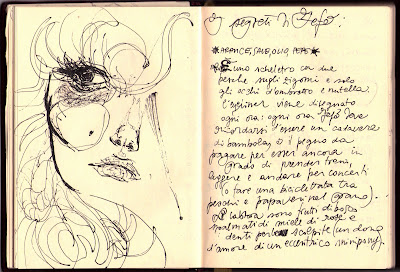 I segreti di Fefè:
*ARANCE, SALE, OLIO, PEPE*
È uno scheletro con due
pesche sugli zigomi e solo
gli occhi d'ombretto e nutella.
L'eyeliner viene disegnato
ogni ora: ogni ora Fefè deve
ricordarsi d'essere un cadavere
di bambola, è il pegno da
pagare per esser ancora in
grado di prender treni,
leggere e andare per concerti
o fare una biciclettata tra
peschi e papaveri nel grano.
Le labbra sono frutti di bosco
spalmati di miele di rose e
denti perle scolpite (un dono
d'amore di un eccentrico minipony).